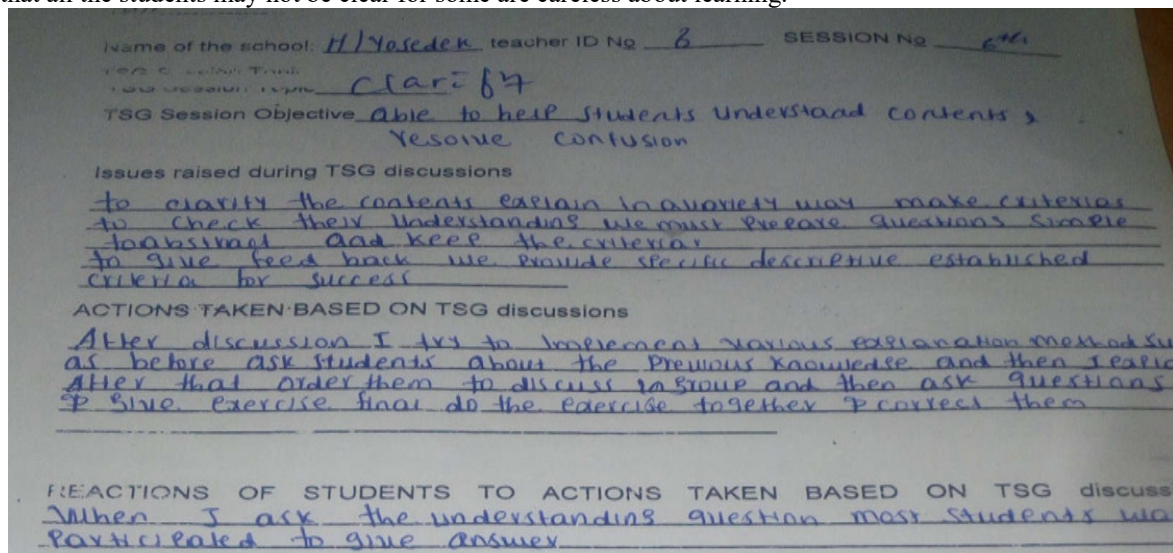 that all the students may not be clear for some are careless about learning.
Name of the school: H/Yosedek teacher ID No 8 SESSION No 6th
Clarify
TSG Session Objective able to help students understaad contents,
resolve confusion
Issues raised during TSG discussions
to clarity the contents explain in avoriety way make criterias
to check their understanding we must prepare questions simple
toabstract aad keep the criteriar
to give feed back we provide specific descriptive established
criteria for success
ACTIONS TAKEN BASED ON TSG discussions
After discussion I try to implement various explanation method su
as before ask students about the previous knowledge and then I explai
After that order them to discuss in group and then ask questians
& give exercise final do the exercise together & correct them
REACTIONS OF STUDENTS TO ACTIONS TAKEN BASED ON TSG discuss
When I ask the understanding question most students wa
participated to give answer